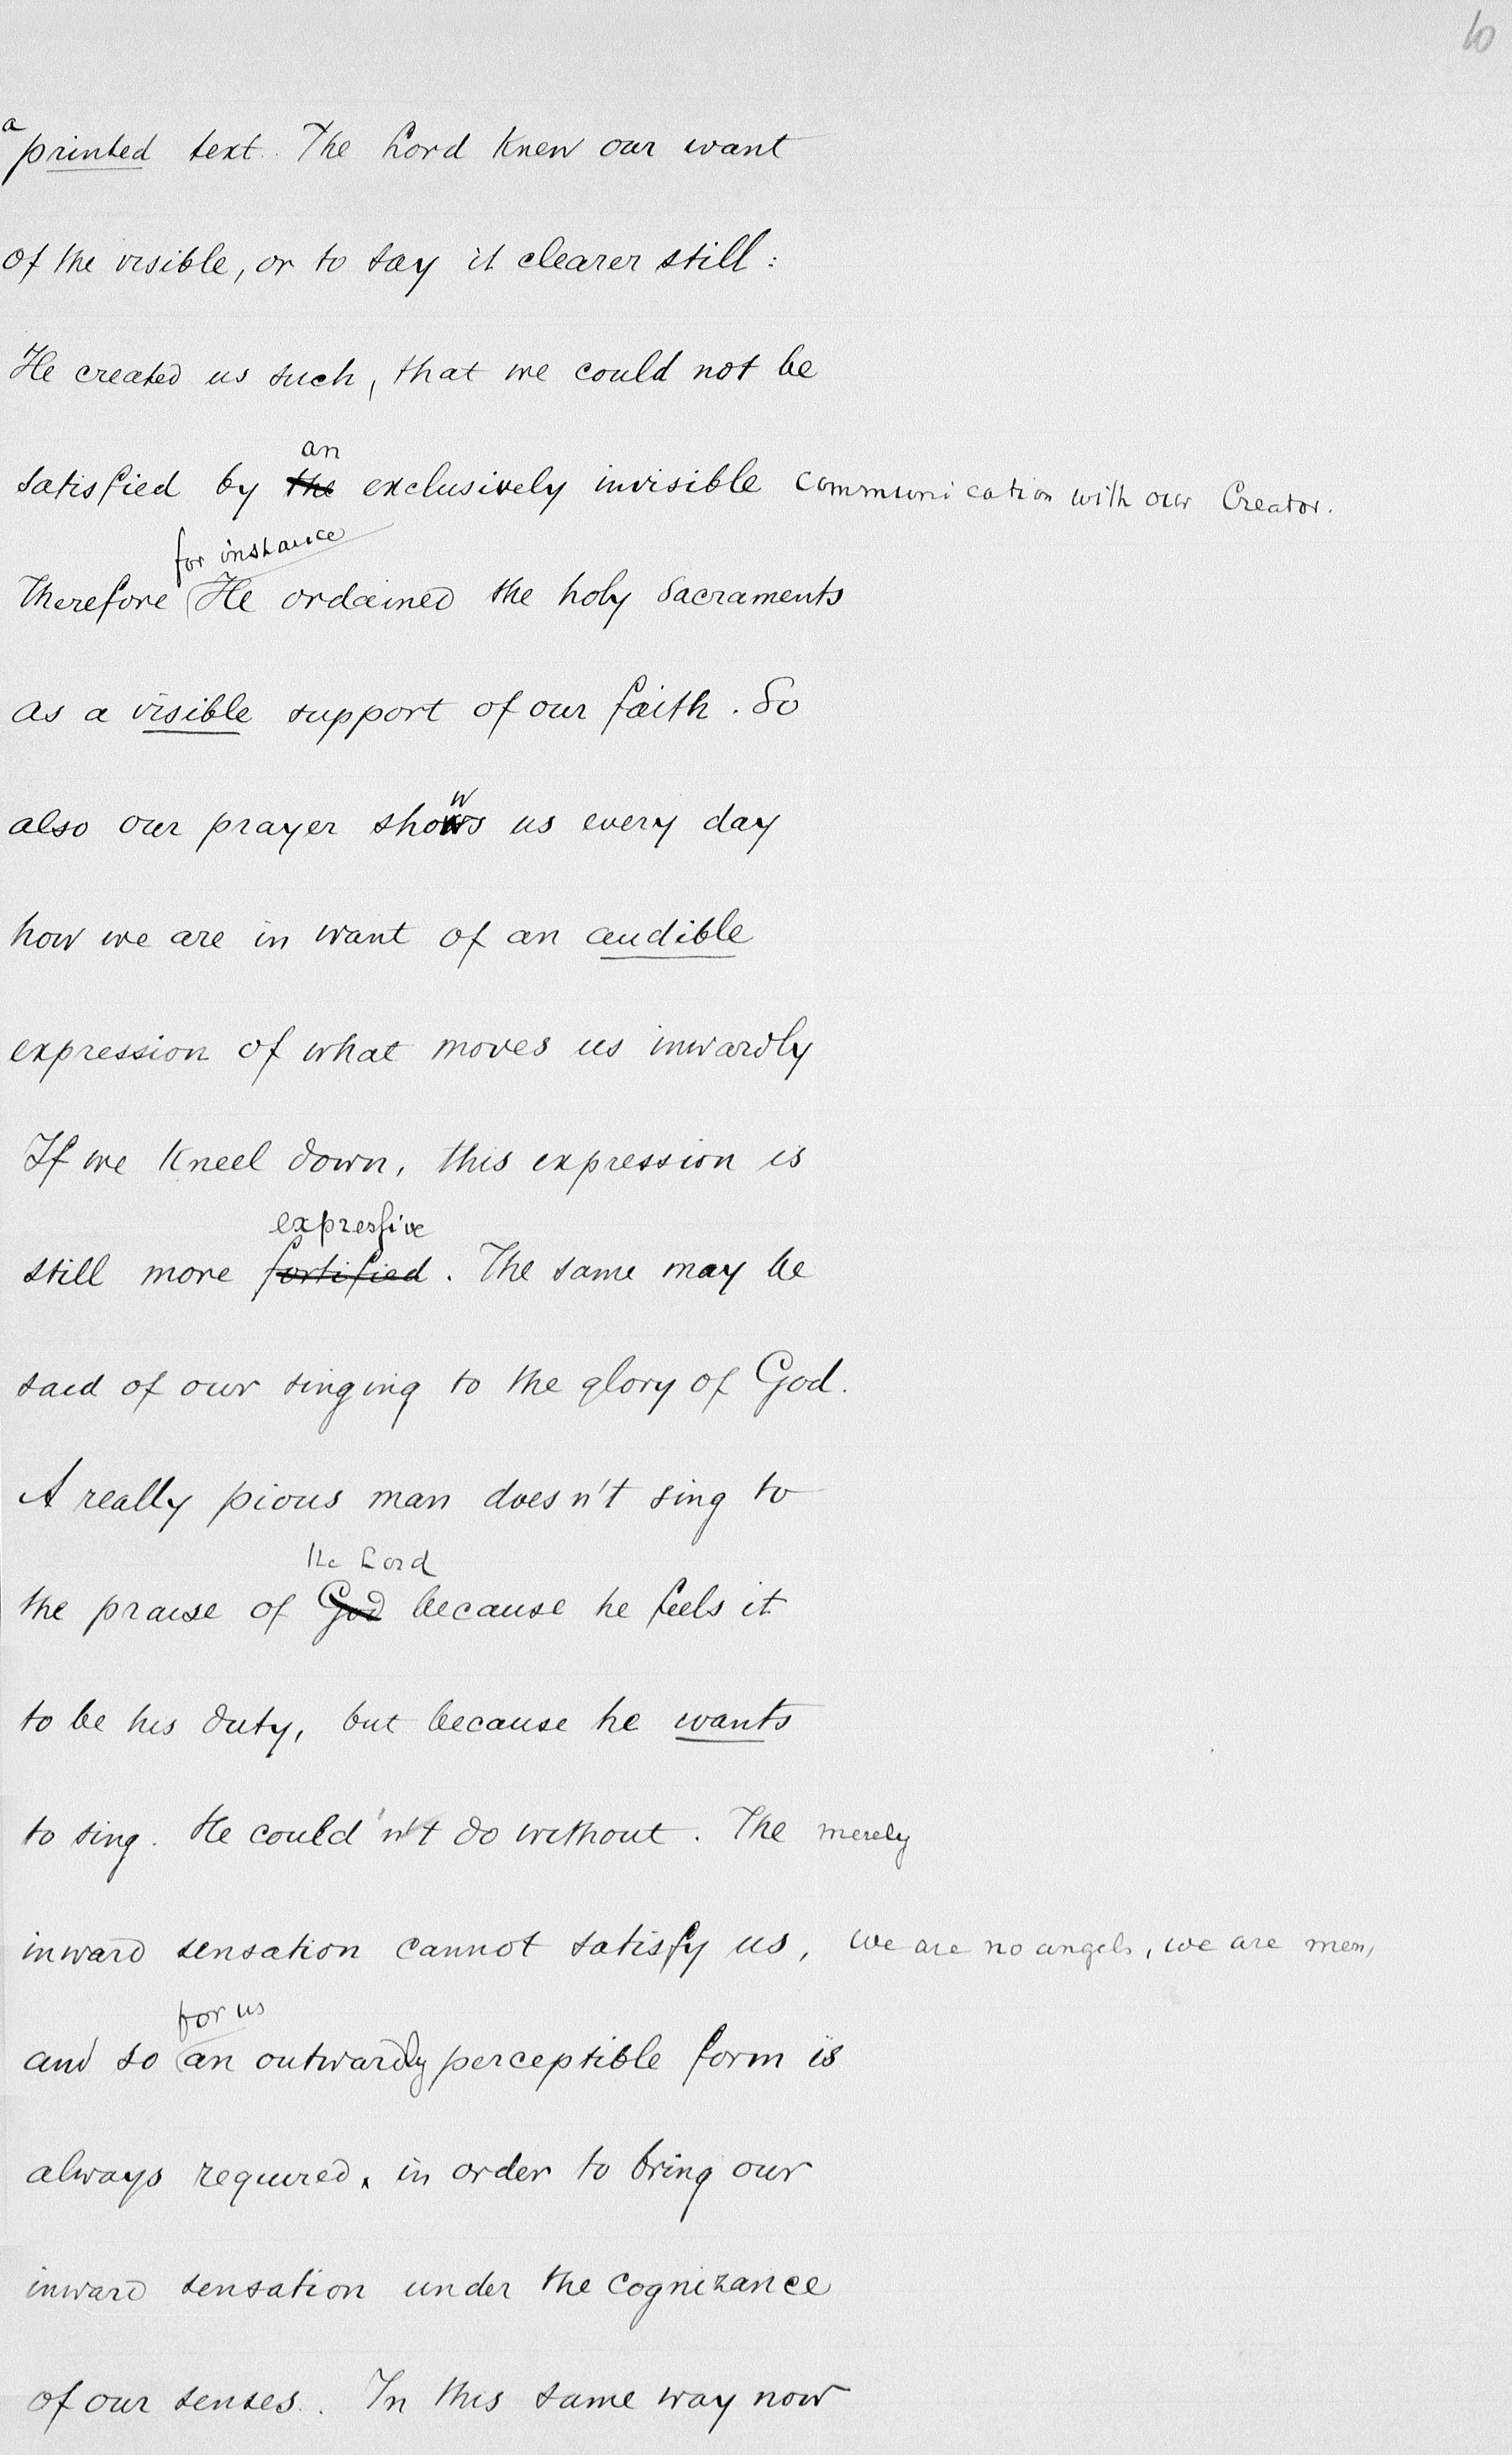 10
a
printed text. The Lord knew our want
of the visible, or to say it clearer still:
He created us such, that we could not be
an
satisfied by the exclusively invisible communication with our Creator.
for instance
Therefore He ordained the holy Sacraments
as a visible support of our faith. So
w
also our prayer shows us every day
how we are in want of an audible
expression of what moves us inwardly
If we kneel down, this expression is
expressive
still more fortified. The same may be
said of our singing to the glory of God.
A really pious man doesn't sing to
the Lord
the praise of God because he feels it
to be his duty, but because he wants
to sing. He could'n't do without. The merely
inward sensation cannot satisfy us, we are no angels, we are men,
for us
and so an outwardly perceptible form is
always required, in order to bring our
inward sensation under the cognizance
of our senses. In this same way now